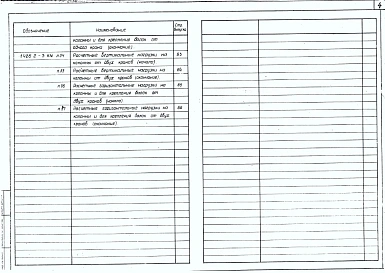 4
Обозначение Наименование Стр.
колонны и для крепления балок от
одного крана (окончание)
Расчетные вертикальные нагрузки на 85
колонны от двух кранов (начало)
Расчетные вертикальные нагрузки на 86
колонны от двух кранов (окончание)
Расчетные горизонтальные нагрузки на
колонны и для крепления балок от
двух кранов (начало)
Расчетные горизонтальные нагрузки на
колонны и для крепления балок от двух
кранов (окончание)